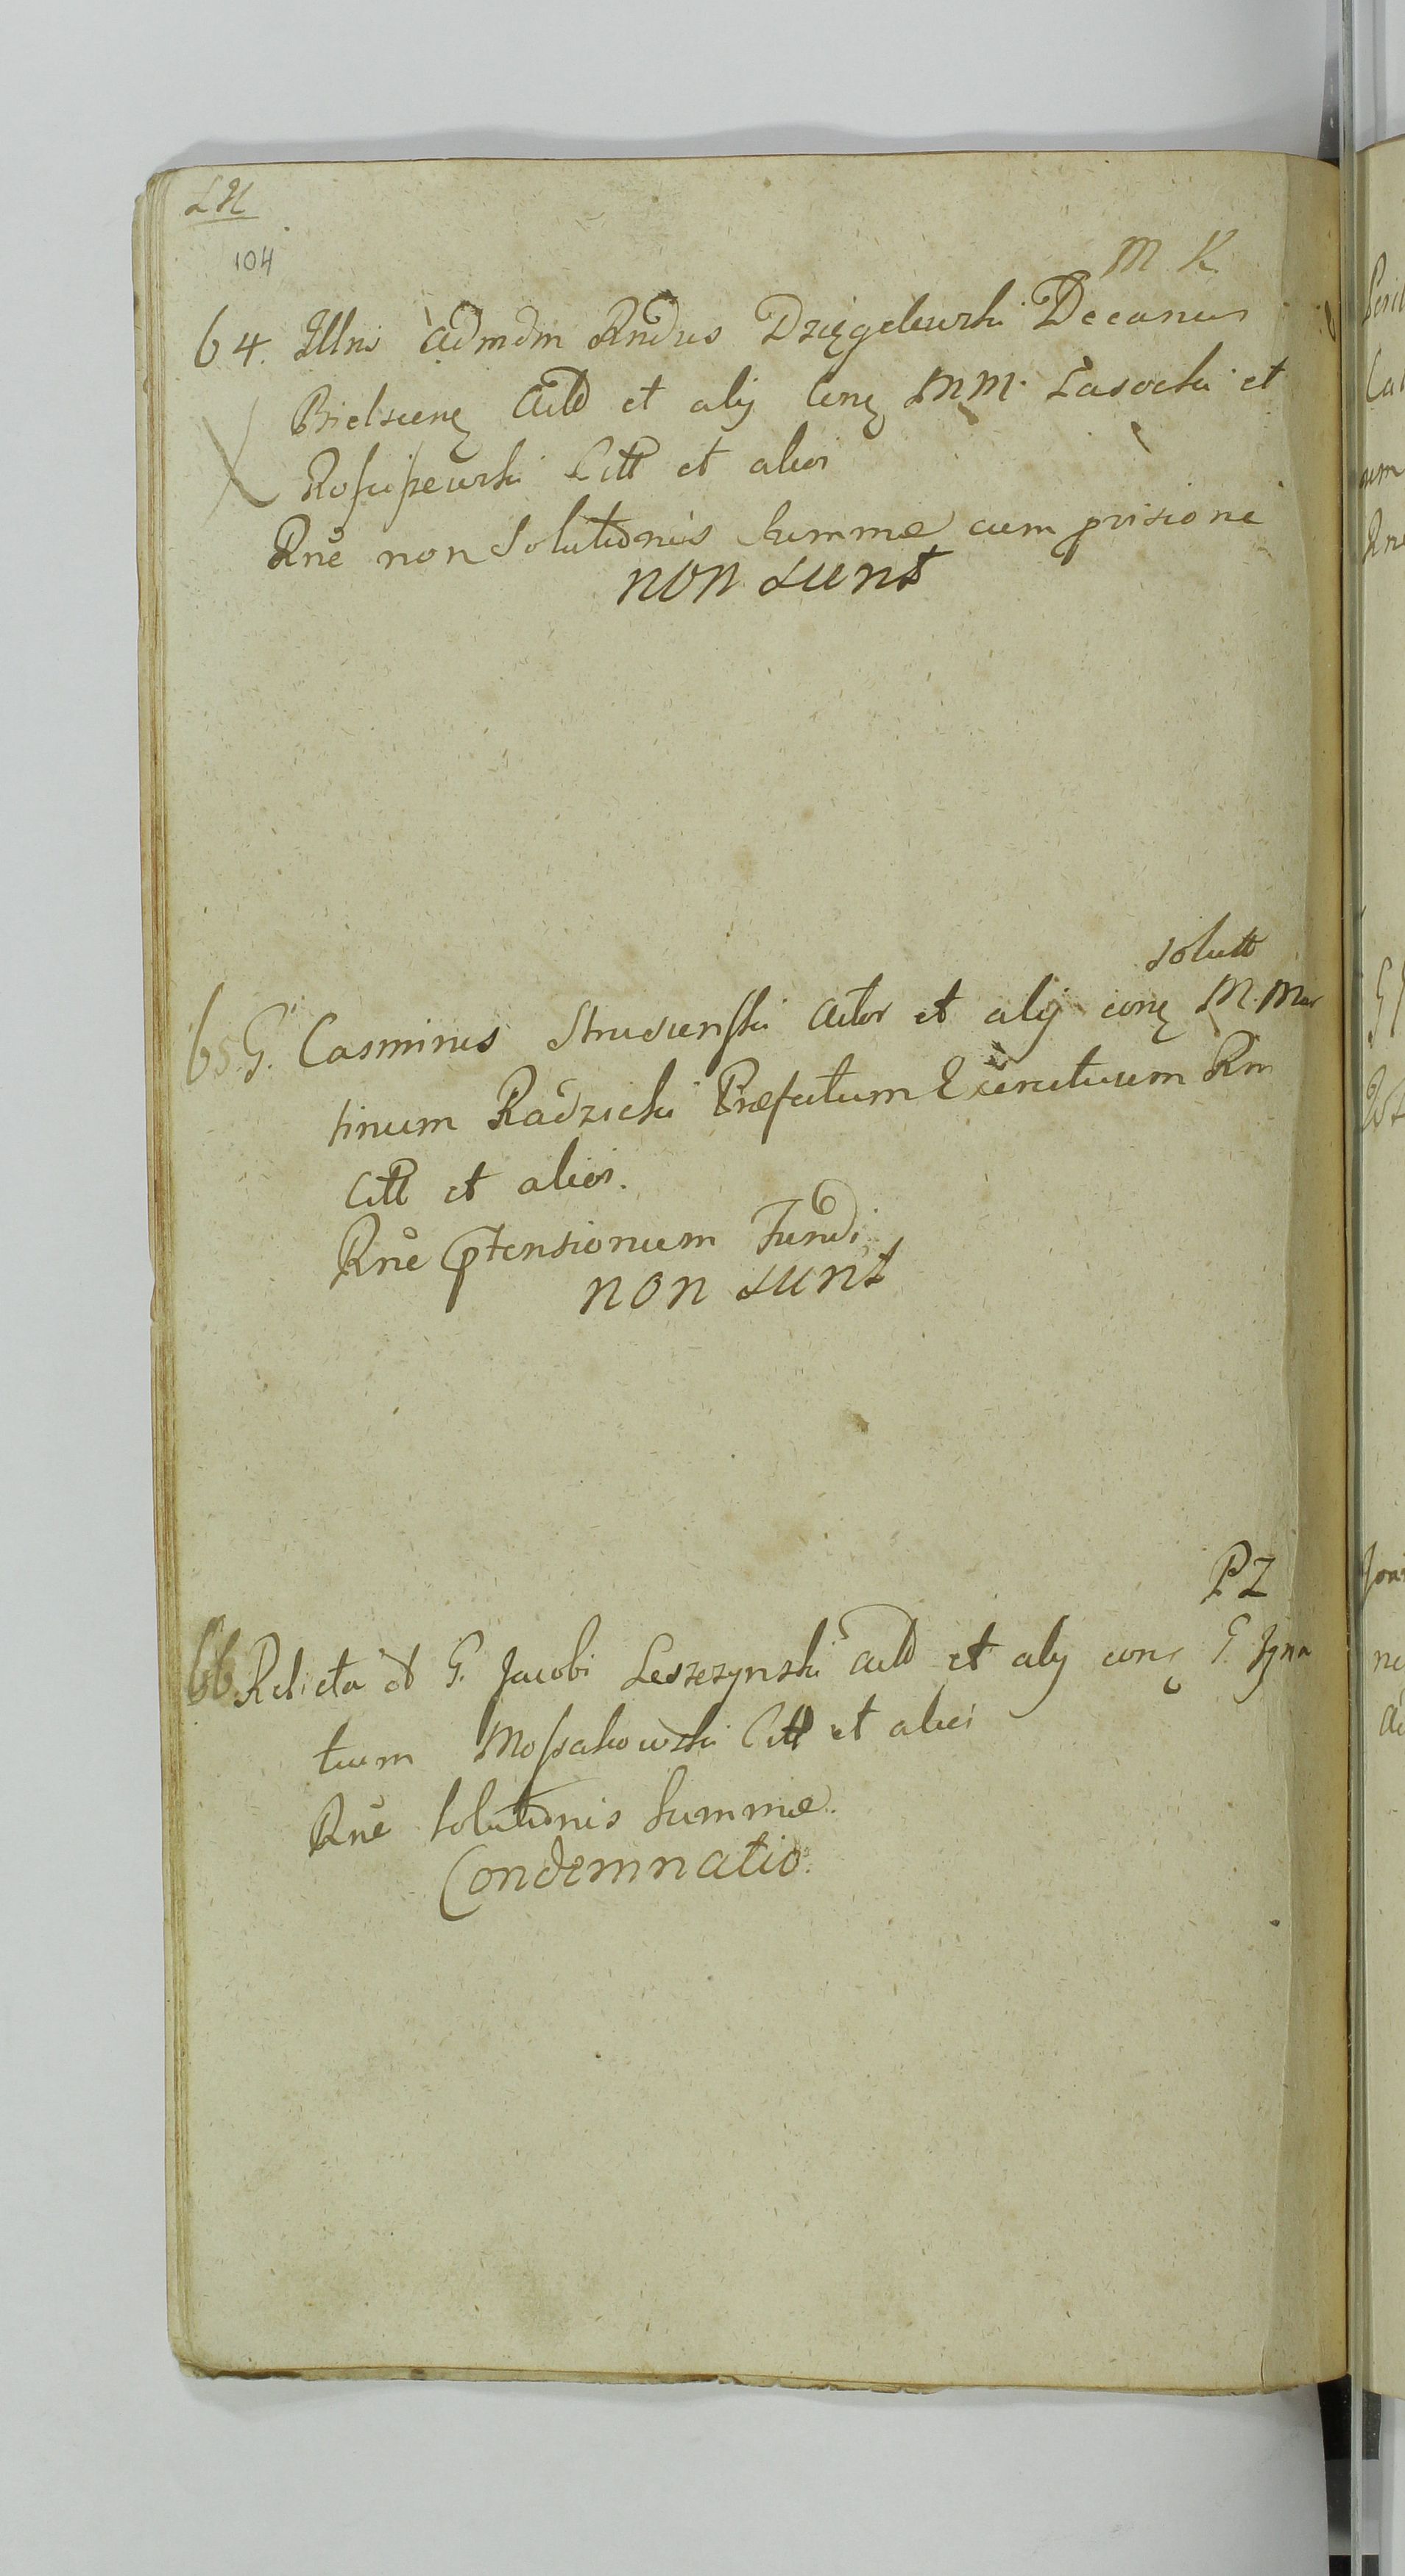 LH
104
M K.
64. Illris Admdm Rndus Dzięgelewski Decanus
Bielscenę Actt et alij conę MM. Lasocki et
Rościszewski Citt et alios
Rne non Solutionis Summæ cum prisione
non sunt
solutt
65 G. Casmirus Strusienski Actor et alij conę M. Mar
tinum Radzicki Præfectum Exercituum Rm
Citt et alios.
Rne ptensionum Fundi
non sunt
PZ
66 Relicta ol G. Jacobi Leszczynski Actt et alij conę G. Igna
tium Mossakowski Citt et alios
Rne Solutionis Summæ.
Condemnatio.